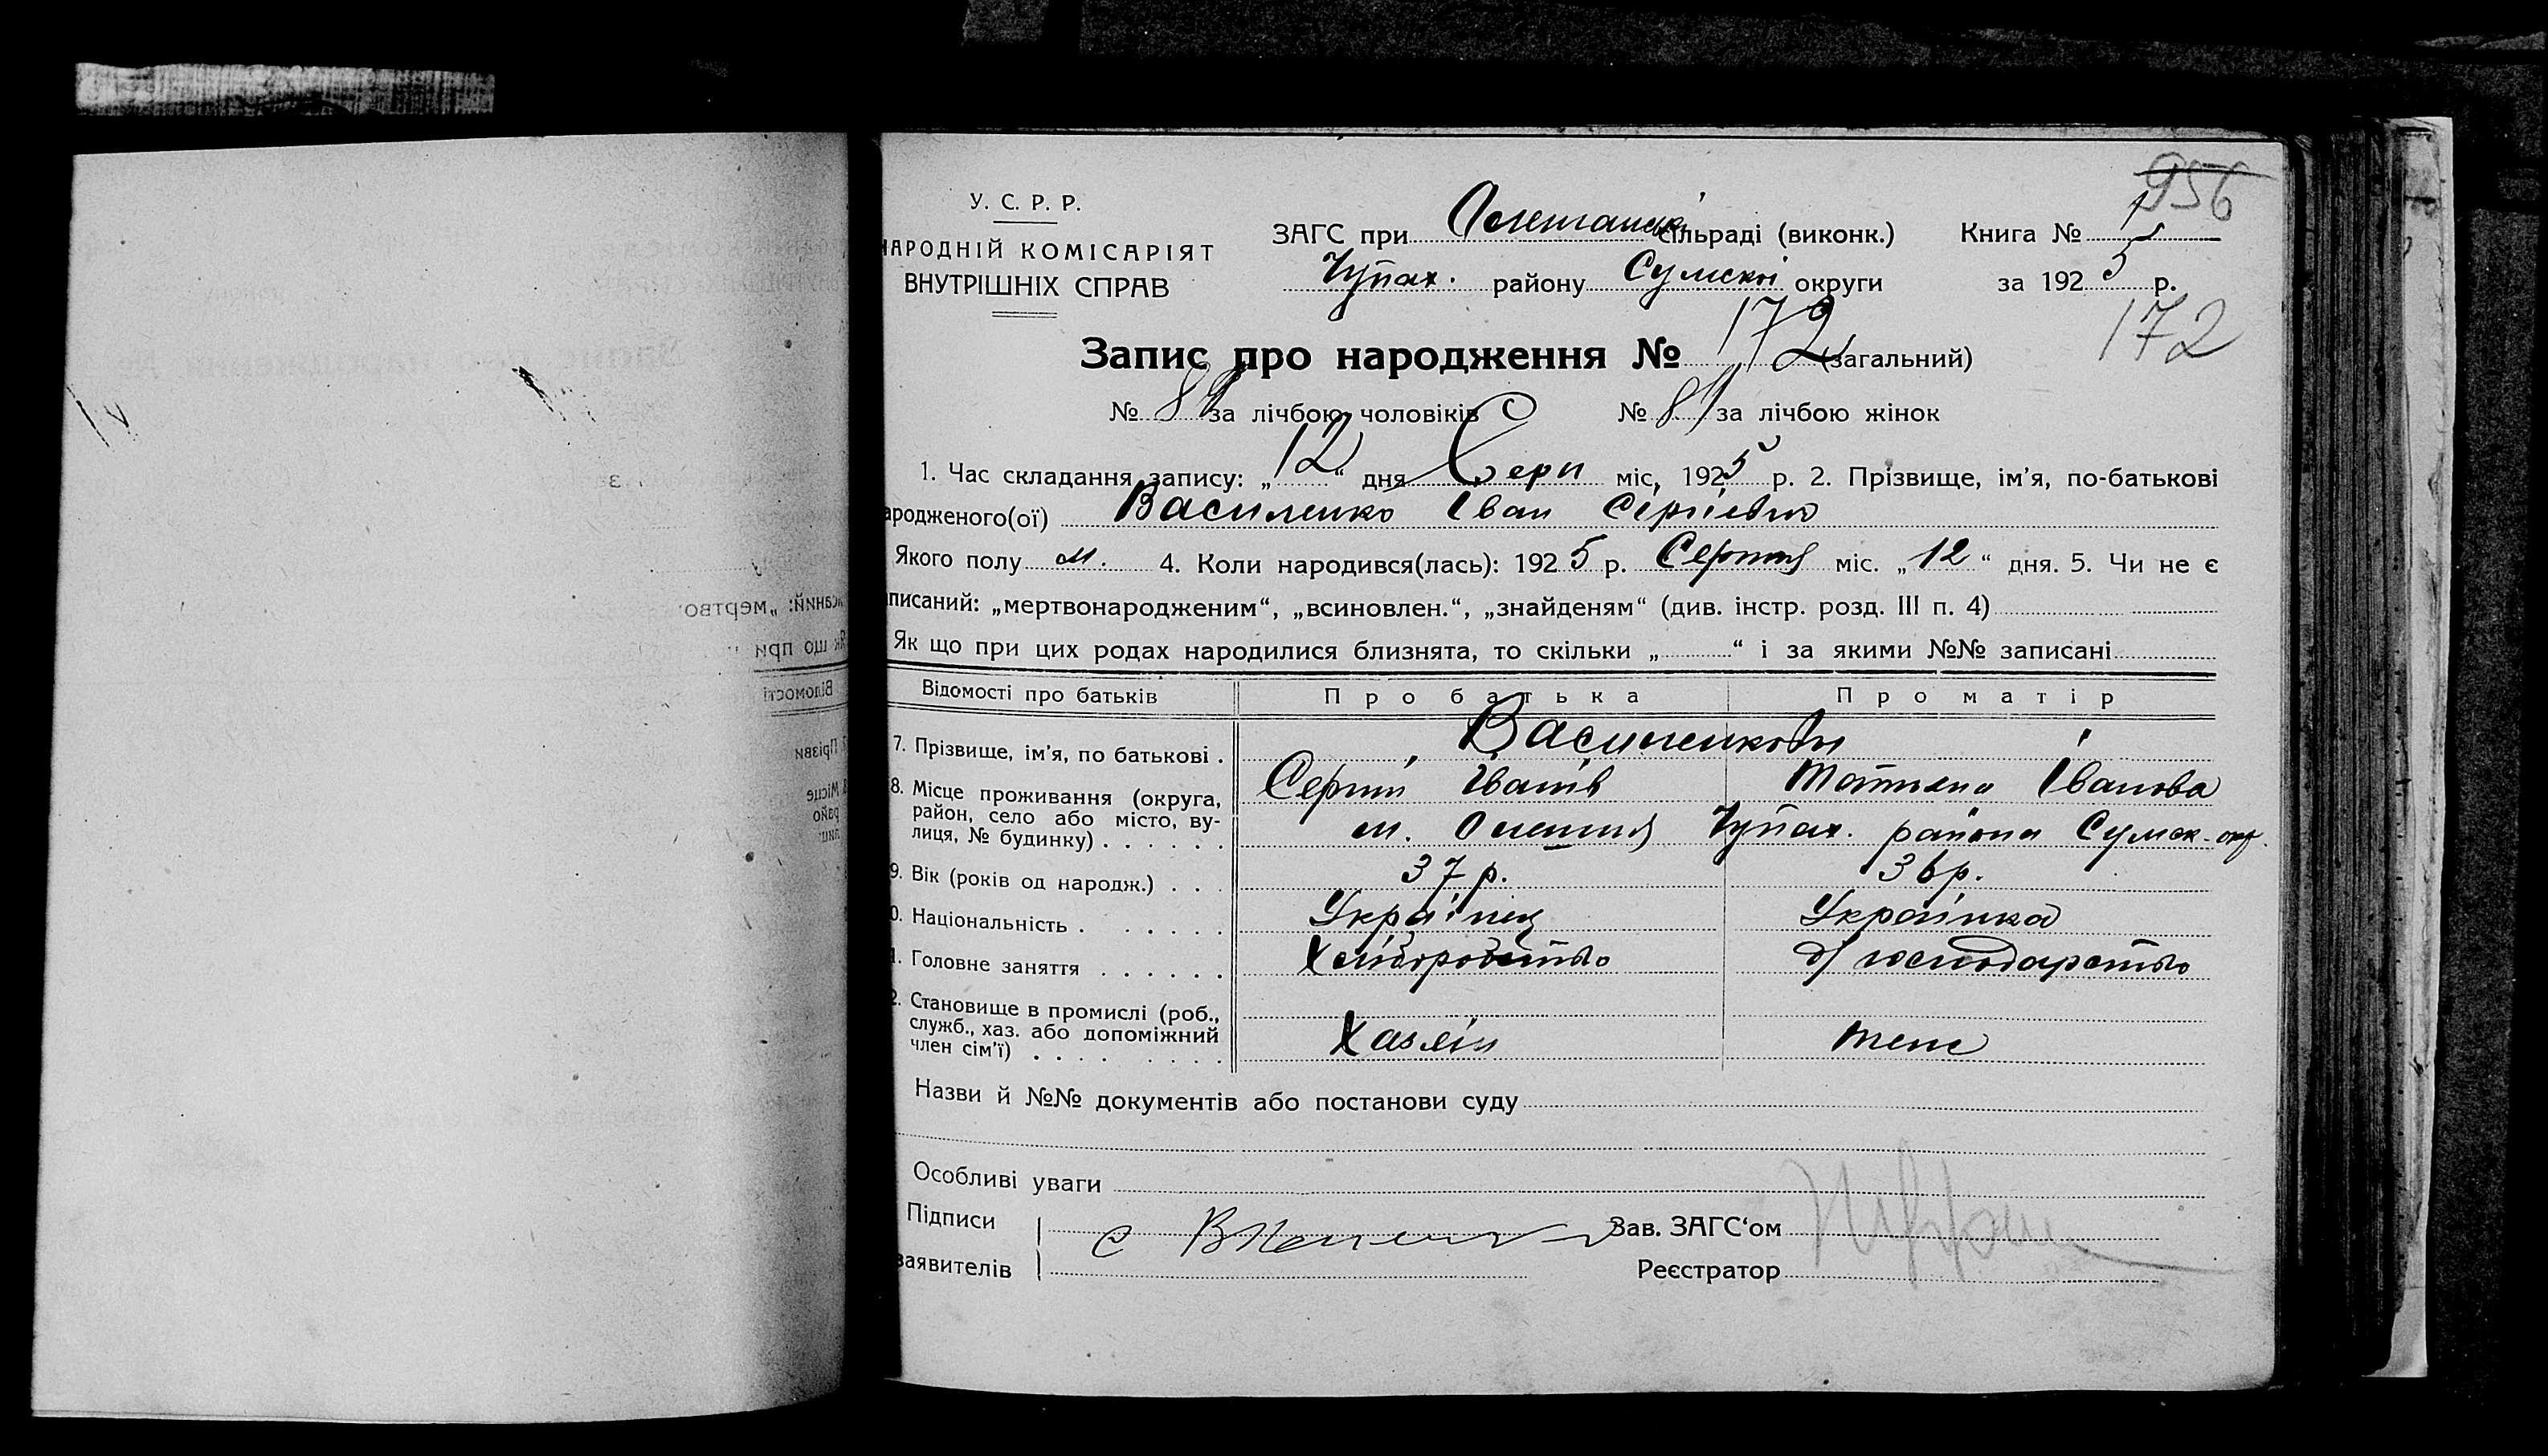 956
У. С. Р. Р.
НАРОДНІЙ КОМІСАРІЯТ
ВНУТРІШНІХ СПРАВ
ЗАГС при Олешанськ сільраді (виконк.) Книга № 1
Чупах. району Сумської округи за 1925 р.
172
Запис про народження № 172 (загальний)
№ за лічбою чоловіків № за лічбою жінок
1. Час складання запису: „12“ дня Серп міс, 1925 р. 2. Прізвище, ім’я, по-батькові
ародженого(ої) Василенко Іван Сергієвич
Якого полу м. 4. Коли народився(лась): 1925 р. Серпня міс. „12“ дня. 5. Чи не є
аписаний: „мертвонародженим“, „всиновлен.“, „знайденям“ (див. інстр. розд. III п. 4)
Як що при цих родах народилися близнята, то скільки „ “ і за якими №№ записані
Відомості про батьків Про батька Про матір
7. Прізвище, ім’я, по батькові . Василенкови
Сергій Іванів Татьяна Іванова
8. Місце проживання (округа,
район, село або місто, ву-
лиця, № будинку) . . . . . . м. Олешня Чупах. района Сумск. окр.
9. Вік (років од народж.) . . . 37 р. 36 р.
0. Національність . . . . . . Українец Українка
1. Головне заняття . . . . . . Хліборобство д/господарство
2. Становище в промислі (роб.,
служб., хаз. або допоміжний
член сім’ї) . . . . . . . . Хазяїн
Назви й №№ документів або постанови суду
Особливі уваги
Підписи
заявителів
Зав. ЗАГС‘ом
Реєстратор